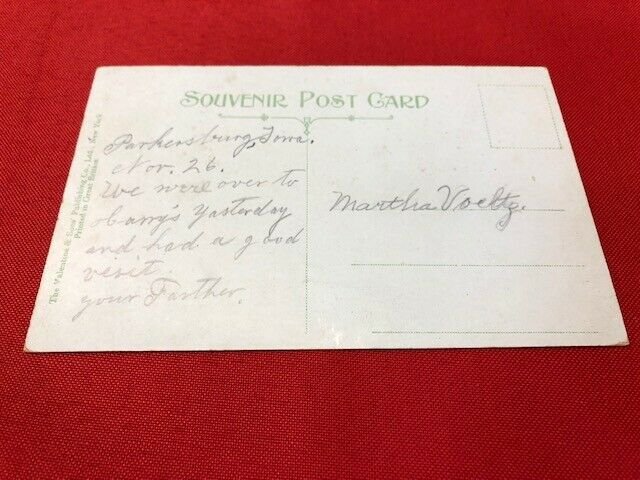 SOUVENIR POST CARD
The Valentine & Sons' Publishing Co., Ltd., New York
Printed in Great Britain
Parkersburg, Iowa.
Nov. 26.
We were over to
obarry's yasterday
and had a good
vesit.
your Farther.
Martha Voeltz.